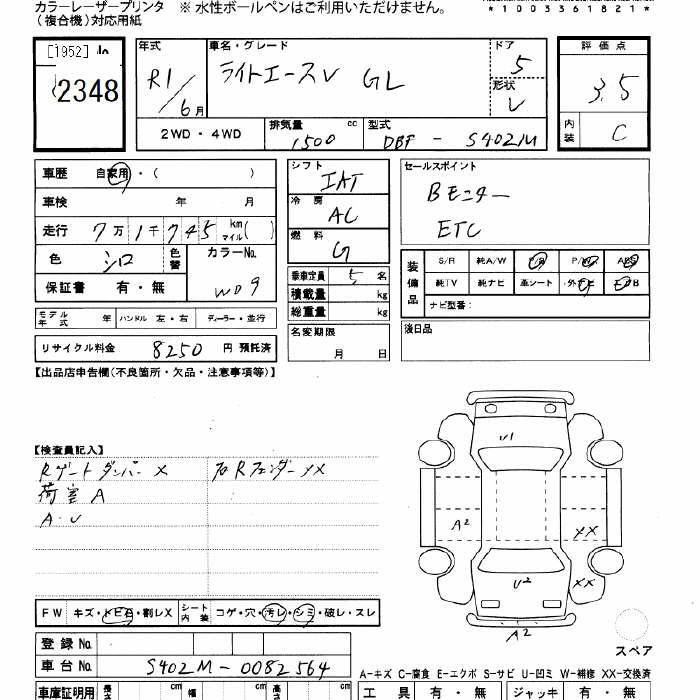 カラーレーザープリンタ ※ 水性ボールペンはご利用いただけません。
(複合機)対応用紙
*1003361821*
[1952]
2348
年式 R1/6月
車名・グレード ライトエースV GL
ドア 5
形状 V
評価点 3.5
内装 C
2WD・4WD
排気量 1500 cc
型式 DBF - S402M
車歴 自家用・( )
車検 年 月
走行 7万1千745 km マイル( )
色 シロ 色替
カラーNo. W09
保証書 有・無
モデル年式 年 ハンドル 左・右 ディーラー・並行
リサイクル料金 8250 円 預託済
シフト IAT
冷房 AC
燃料 G
乗車定員 5 名
積載量 kg
総重量 kg
名変期限 月 日
セールスポイント
Bモニター
ETC
装備品 S/R 純A/W P/S P/W ABS
純TV 純ナビ 革シート 外ナビ エアB
ナビ型番:
後日品
【出品店申告欄(不良箇所・欠品・注意事項等)】
【検査員記入】
Rゲートダンパー X
右Rフェンダー XX
荷室 A
A・U
U1
A2
XX
U2
XX
A2
スペア
FW キズ・トビ石・割レX シート内装 コゲ・穴・汚レ・シミ・破レ・スレ
登録No.
車台No. S402M-0082564
A-キズ C-腐食 E-エクボ S-サビ U-凹ミ W-補修 XX-交換済
車庫証明用 長さ cm 幅 cm 高さ cm
工具 有・無 ジャッキ 有・無